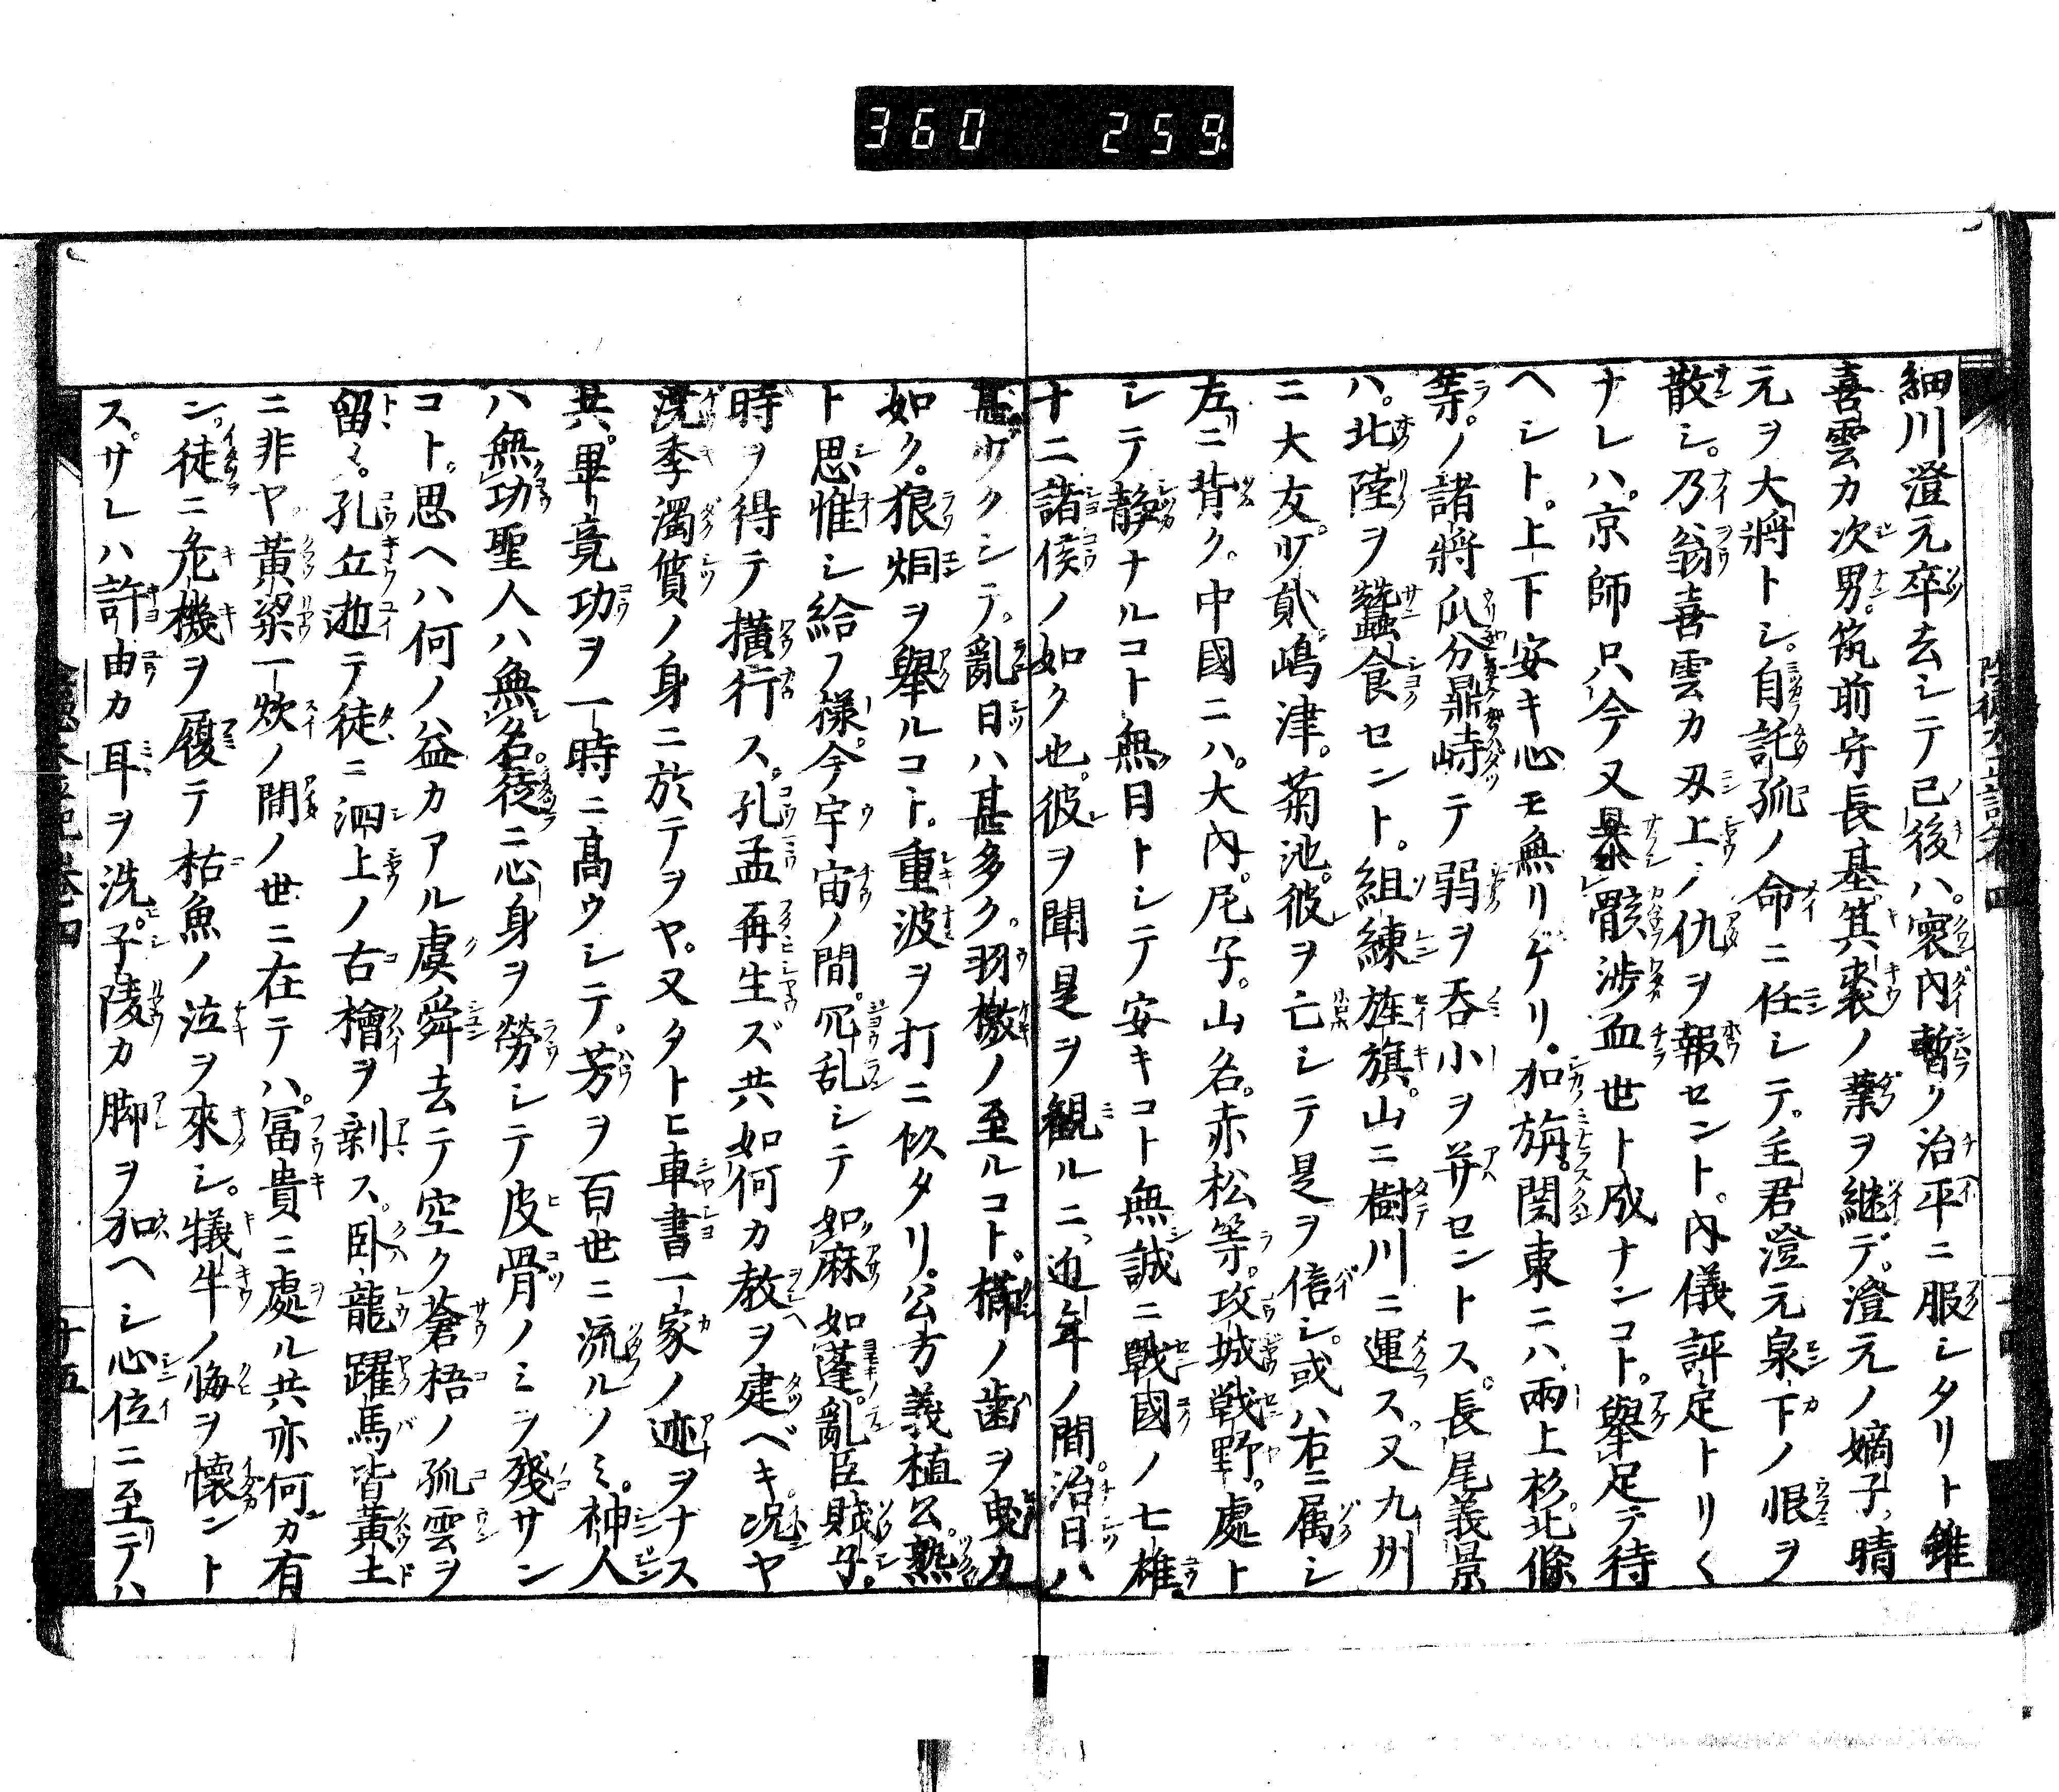 360 259
細川澄元卒去シテ已後ハ。寰内暫ク治平ニ服シタリト雖
喜雲カ次男。筑前守長基。箕裘ノ業ヲ継デ。澄元ノ嫡子。晴
元ヲ大將トシ。自託孤ノ命ニ任シテ。主君澄元泉下ノ恨ヲ
散シ。乃翁喜雲カ刄上ノ仇ヲ報セント。内儀評定トリ〱
ナレハ。京師只今又暴骸渉血世ト成ナンコト。擧足テ待
ヘシト。上下安キ心モ無リゲリ。加旃。関東ニハ兩上杉。北條
等。ノ諸將瓜分鼎峙テ弱ヲ呑小ヲ并セントス。長尾義景
ハ。北陸ヲ蠶食セント。組練旌旗。山ニ樹川ニ運ス。又九州
ニ大友。少貳。嶋津。菊池。彼ヲ亡シテ是ヲ倍シ。或ハ右ニ属シ
左ニ背ク。中國ニハ。大内。尼子。山名。赤松等。攻城戦野。處ト
シテ静ナルコト無日トシテ安キコト無誠ニ戰國ノ七雄
十二諸侯ノ如ク也。彼ヲ聞是ヲ観ルニ近年ノ間。治日ハ
甚少クシテ。亂日ハ甚多ク。羽檄ノ至ルコト。櫛ノ歯ヲ曳カ
如ク。狼烟ヲ舉ルコト。重波ヲ打ニ似タリ。公方義植公。熟
ト思惟シ給フ様。今宇宙ノ間。冗乱シテ如麻如蓬。亂臣賊子。
時ヲ得テ横行ス。孔孟再生ズ共如何カ教ヲ建ベキ况ヤ
澆季濁質ノ身ニ於テヲヤ。又タトヒ車書一家ノ迹ヲナス
共。畢竟功ヲ一時ニ高ウシテ。芳ヲ百世ニ流ルノミ。神人
ハ無功聖人ハ無名。徒ニ心身ヲ勞シテ皮骨ノミヲ殘サン
コト。思ヘハ何ノ益カアル虞舜去テ空ク蒼梧ノ孤雲ヲ
留メ。孔丘逝テ徒ニ泗上ノ古檜ヲ剰ス。臥龍躍馬皆黄土
ニ非ヤ。黄粱一炊ノ間ノ世ニ在テハ。冨貴ニ處ル共亦何カ有
ン。徒ニ危機ヲ履テ枯魚ノ泣ヲ來シ。犠牛ノ悔ヲ懐ント
ス。サレハ許由カ耳ヲ洗。子陵カ脚ヲ加ヘシ心位ニ至テハ